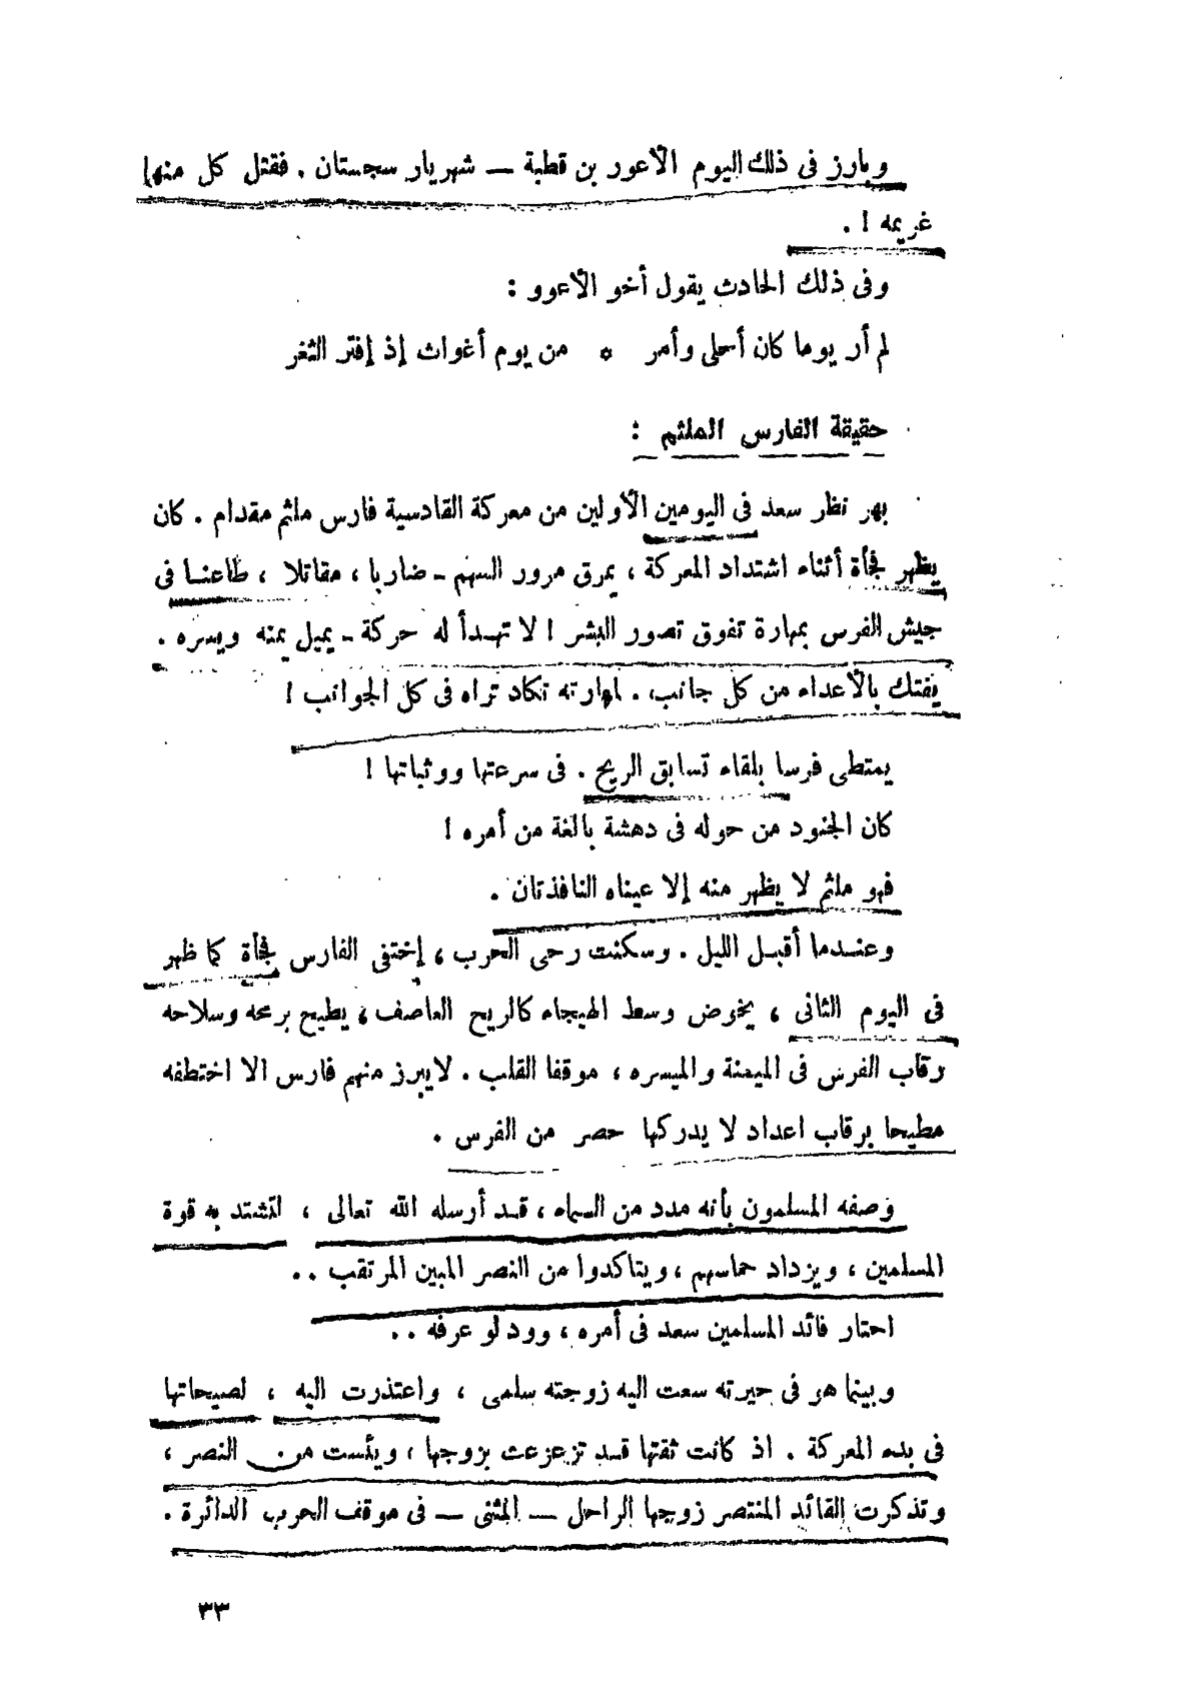 وبارز فى ذلك اليوم الأعور بن قطبة — شهريار سجستان . فقتل كل منهما
غريمه ! .
وفى ذلك الحادث يقول أخو الأعوو :
لم أر يوما كان أحلى وأمر * من يوم أغواث إذ إفتر الثغر
حقيقة الفارس الملثم :
بهر نظر سعد فى اليومين الأولين من معركة القادسية فارس ملثم مقدام . كان
يظهر فجأة أثناء اشتداد المعركة ، يمرق مرور السهم - ضاربا ، مقاتلا ، طاعنا فى
جيش الفرس بمهارة تفوق تصور البشر ! لا تهدأ له حركة - يميل يمنه ويسره .
يفتك بالأعداء من كل جانب . لمهارته تكاد تراه فى كل الجوانب !
يمتطى فرسا بلقاء تسابق الريح . فى سرعتها ووثباتها !
كان الجنود من حوله فى دهشة بالغة من أمره !
فهو ملثم لا يظهر منه إلا عيناه النافذتان .
وعندما أقبل الليل . وسكنت رحى الحرب ، إختفى الفارس فجأة كما ظهر
فى اليوم الثانى ، يخوض وسط الهيجاء كالريح العاصف ، يطيح برمحه وسلاحه
رقاب الفرس فى الميمنة والميسره ، موقفا القلب . لايبرز منهم فارس الا اختطفه
مطيحا برقاب اعداد لا يدركها حصر من الفرس .
وصفه المسلمون بأنه مدد من السماء ، قد أرسله الله تعالى ، لتشتد به قوة
المسلمين ، ويزداد حماسهم ، ويتاكدوا من النصر المبين المرتقب . .
احتار قائد المسلمين سعد فى أمره ، وود لو عرفه . .
وبينما هو فى حيرته سعت اليه زوجته سلمى ، واعتذرت اليه ، لصيحاتها
فى بدء المعركة . اذ كانت ثقتها قد تزعزعت بزوجها ، ويئست من النصر ،
وتذكرت القائد المنتصر زوجها الراحل — المثنى — فى موقف الحرب الدائرة .
٣٣